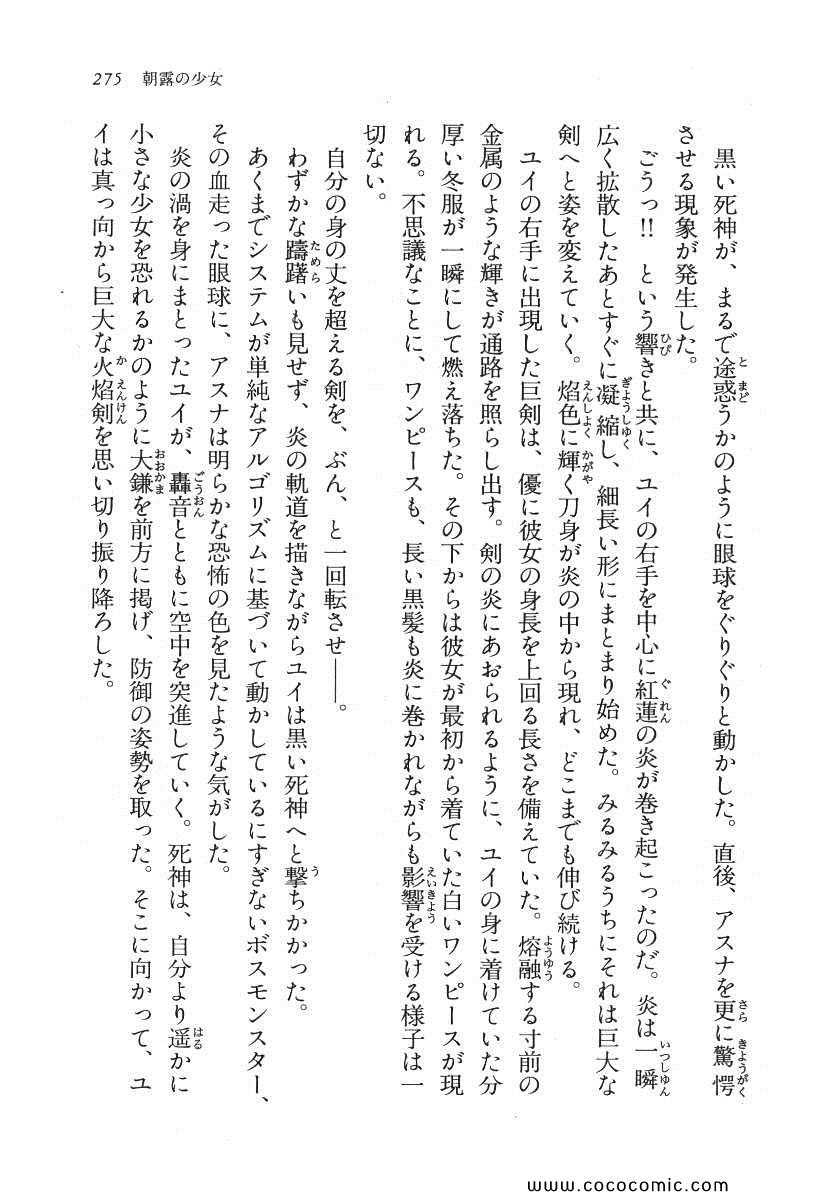 275 朝露の少女
黒い死神が、まるで途惑うかのように眼球をぐりぐりと動かした。直後、アスナを更に驚愕
させる現象が発生した。
ごうっ!! という響きと共に、ユイの右手を中心に紅蓮の炎が巻き起こったのだ。炎は一瞬
広く拡散したあとすぐに凝縮し、細長い形にまとまり始めた。みるみるうちにそれは巨大な
剣へと姿を変えていく。焰色に輝く刀身が炎の中から現れ、どこまでも伸び続ける。
ユイの右手に出現した巨剣は、優に彼女の身長を上回る長さを備えていた。熔融する寸前の
金属のような輝きが通路を照らし出す。剣の炎にあおられるように、ユイの身に着けていた分
厚い冬服が一瞬にして燃え落ちた。その下からは彼女が最初から着ていた白いワンピースが現
れる。不思議なことに、ワンピースも、長い黒髪も炎に巻かれながらも影響を受ける様子は一
切ない。
自分の身の丈を超える剣を、ぶん、と一回転させ――。
わずかな躊躇いも見せず、炎の軌道を描きながらユイは黒い死神へと撃ちかかった。
あくまでシステムが単純なアルゴリズムに基づいて動かしているにすぎないボスモンスター、
その血走った眼球に、アスナは明らかな恐怖の色を見たような気がした。
炎の渦を身にまとったユイが、轟音とともに空中を突進していく。死神は、自分より遥かに
小さな少女を恐れるかのように大鎌を前方に掲げ、防御の姿勢を取った。そこに向かって、ユ
イは真っ向から巨大な火焰剣を思い切り振り降ろした。
www.cococomic.com